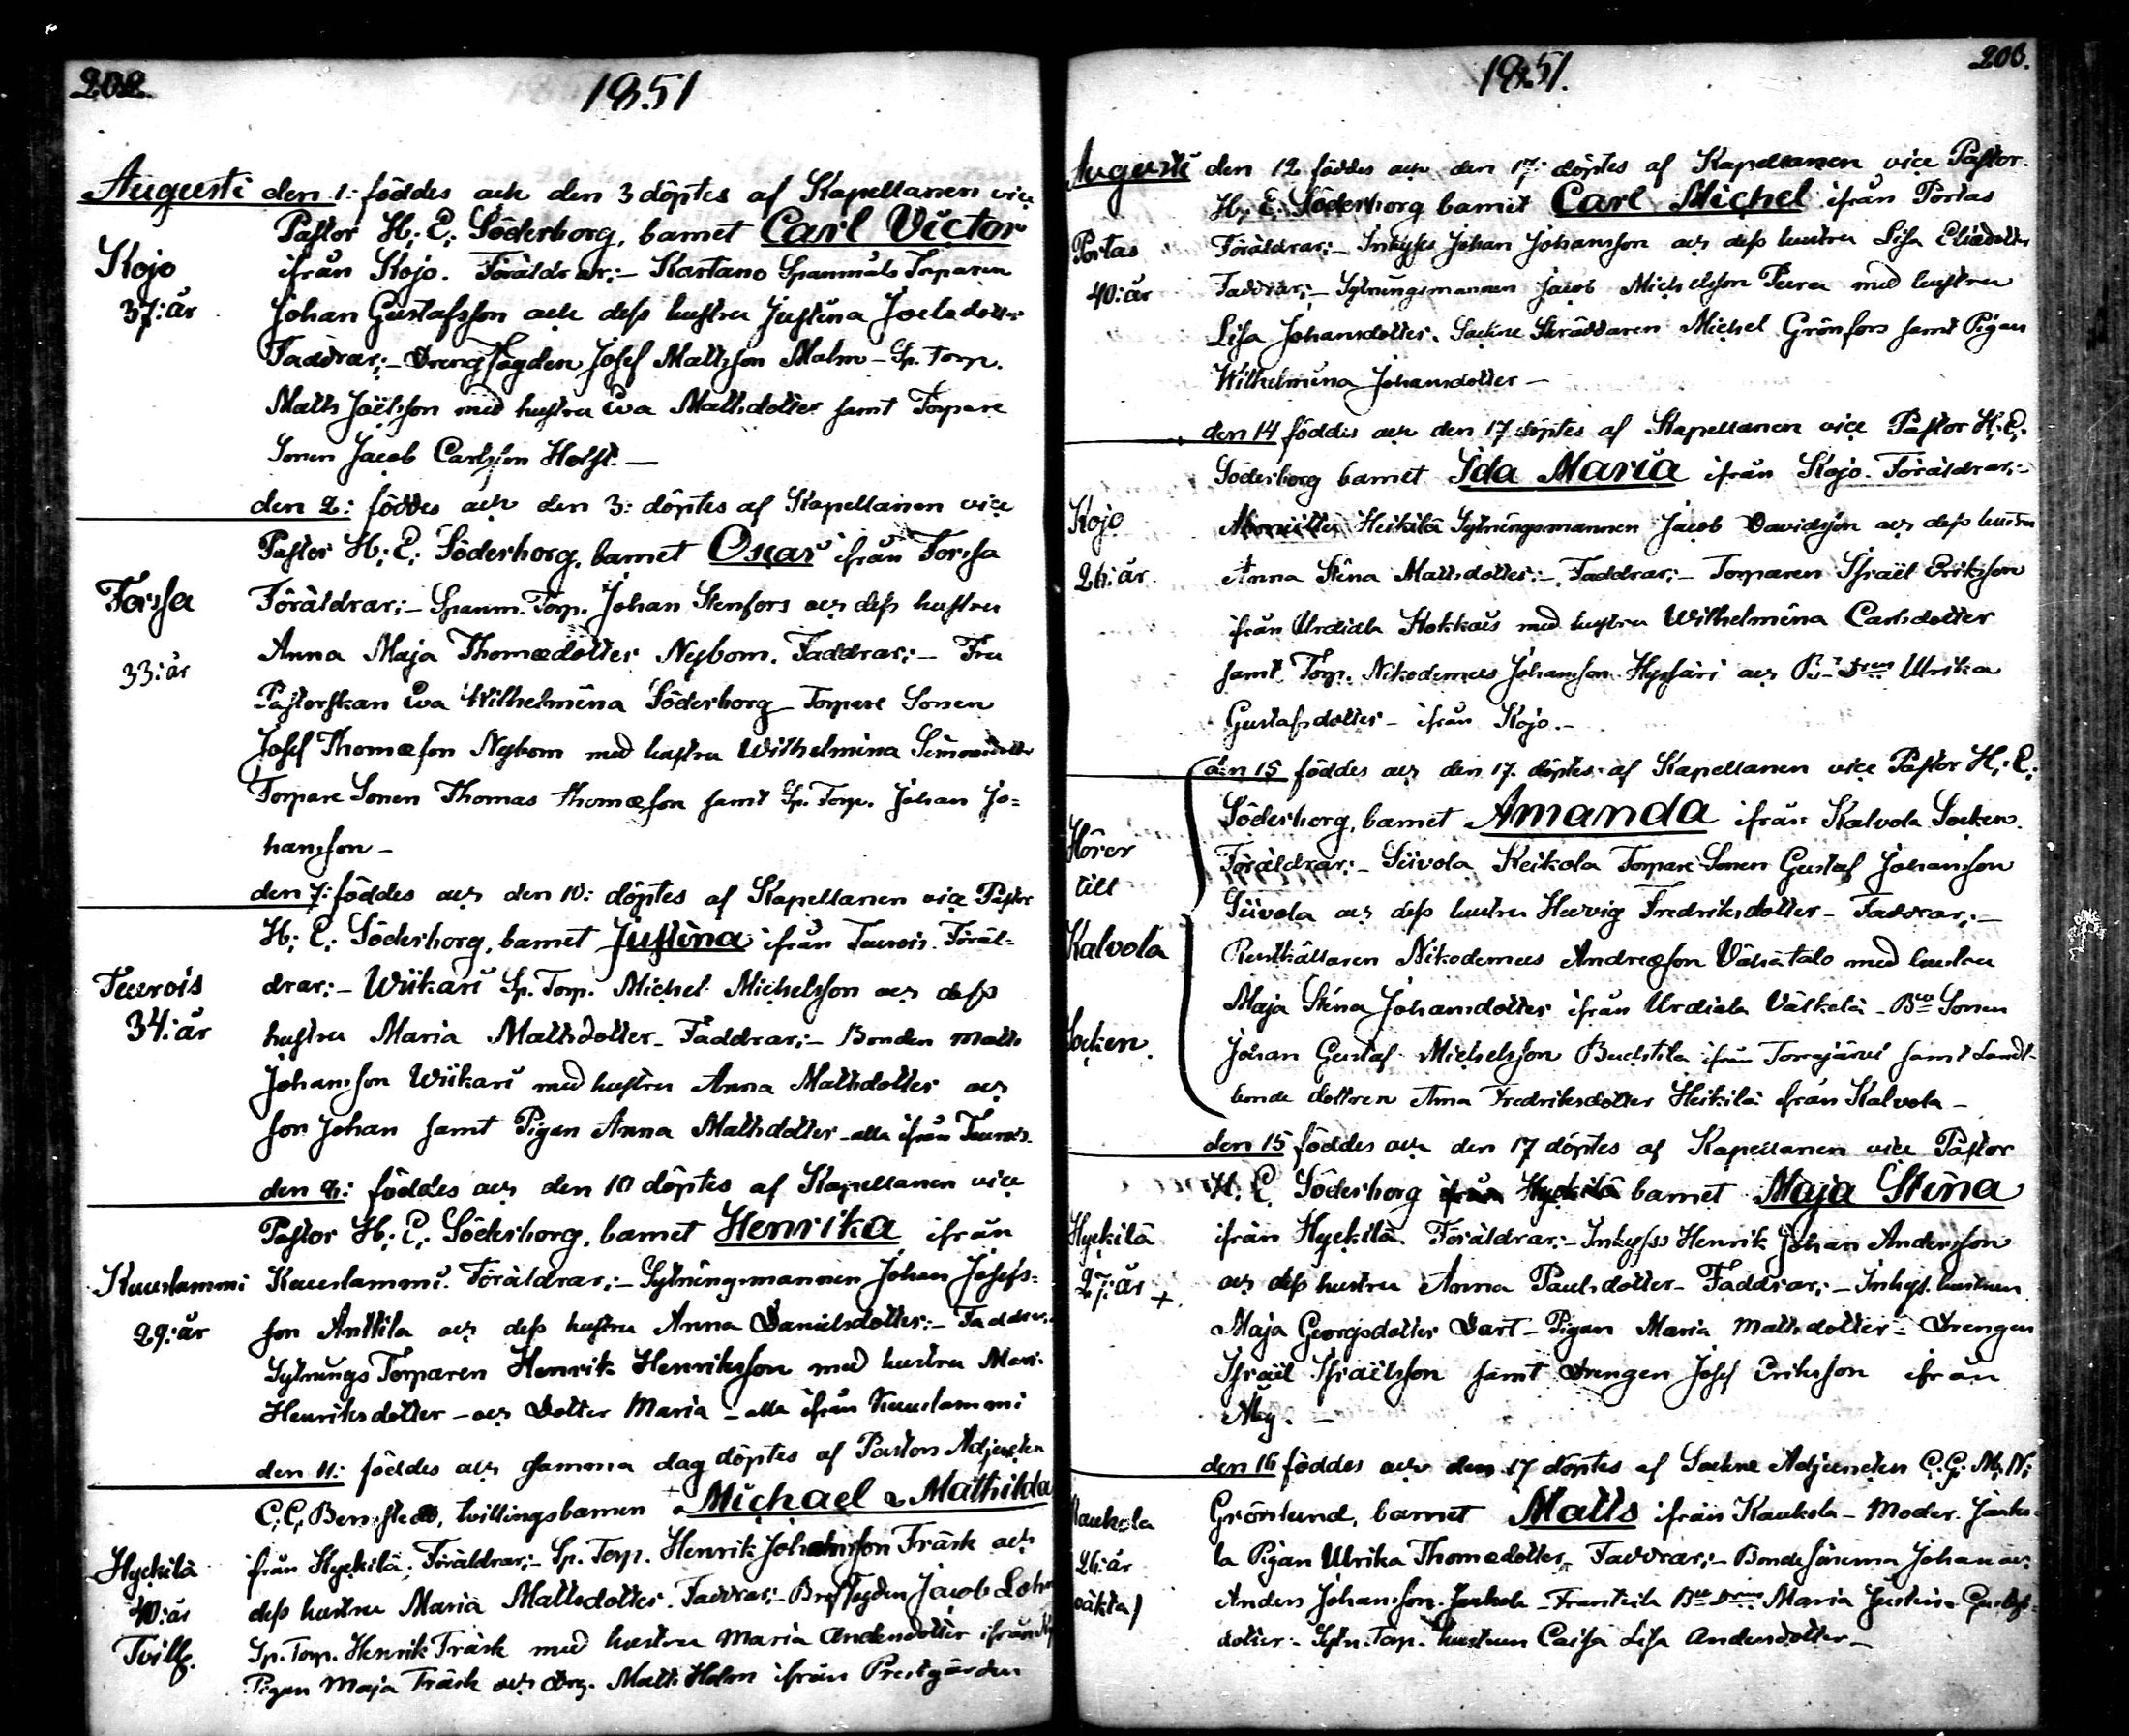 202.
1851
Augusti den 1: föddes och den 3 döptes af Kapellanen vice
Pastor H: E: Söderborg, barnet Carl Victor
Kojo
37: år
ifrån Kojo. Föräldrar:- Kartano Spanmåls Torparen
Johan Gustafsson och dess hustru Justina Joelsdotter
Faddrar:- Drengfogden Josef Mattsson Malm - Sp. Torp.
Matts Joëlsson med hustru Eva Mattsdotter samt Torpare
Sonen Jacob Carlsson Holst. -
den 2: föddes och den 3: döptes af Kapellanen vice
Pastor H: E: Söderborg, barnet Oscar ifrån Forssa
Forssa
33: år
Föräldrar:- Spanm. Torp. Johan Stenfors och dess hustru
Anna Maja Thomædotter Nybom. Faddrar:- Fru
Pastorskan Eva Wilhelmina Söderborg - Torpare Sonen
Josef Thomæson Nybom med hustru Wilhelmina Simonsdotter
Torpare Sonen Thomas Thomæson samt Sp. Torp. Johan Jo=
hansson -
den 7: föddes och den 10: döptes af Kapellanen vice Pastor
H: E: Söderborg, barnet Justina ifrån Teurois. Föräl=
Teurois
34: år
drar:- Wiikari Sp. Torp. Michel Michelsson och dess
hustru Maria Mattsdotter - Faddrar:- Bonden Matts
Johansson Wiikari med hustru Anna Mattsdotter och
son Johan samt Pigan Anna Mattsdotter - alla ifrån Teurois.
den 9: föddes och den 10 döptes af Kapellanen vice
Pastor H: E: Söderborg, barnet Henrika ifrån
Kuuslammi
29: år
Kuuslammi. Föräldrar:- Sytningsmannen Johan Josefs=
son Anttila och dess hustru Anna Danielsdotter:- Faddrar:
Sytnings Torparen Henrik Henriksson med hustru Mari
Henriksdotter - och Dotter Maria - alla ifrån Kuuslammi
den 11: föddes och samma dag döptes af Pastors Adjuncten
C. C. tvillingsbarnen + Michael & Mathilda
Hyckilä
40: år
Tvill.
ifrån Hyckilä: Föräldrar:- Sp. Torp. Henrik Johansson Träsk och
dess hustru Maria Mattsdotter. Faddrar:- Jacob
Sp. Torp. Henrik Träsk med hustru Maria Andersdotter ifrån
Pigan Maja Träsk och Drg. Matts Holm ifrån Prestgården
1851.
203.
Augusti den 12 föddes och den 17: döptes af Kapellanen vice Pastor
H: E: Söderborg barnet Carl Michel ifrån Portas
Portas
40: år
Föräldrar:- Inhyses Johan Johansson och dess hustru Lisa Eliædotter
Faddrar:- Sytningsmannen Jacob Michelsson Pura med hustru
Lisa Johansdotter. Sockne Skräddaren Michel Grönfors samt Pigan
Wilhelmina Johansdotter -
den 14 föddes och den 17 döptes af Kapellanen vice Pastor H: E:
Söderborg barnet Ida Maria ifrån Kojo. Föräldrar:-
Kojo
26: år
Heikilä Sytningsmannen Jacob Davidsson och dess hustru
Anna Stina Mattsdotter:- Faddrar:- Torparen Israël Eriksson
ifrån Urdiala Hokkais med hustru Wilhelmina Carlsdotter
samt Torp. Nikodemus Johansson och Ulrika
Gustafsdotter - ifrån Kojo. -
den 15 föddes och den 17. döptes af Kapellanen vice Pastor H: E:
Söderborg, barnet Amanda ifrån Kalvola Socken.
Hörer
till
Kalvola
Socken.
Föräldrar:- Siivola Keikola Torpare Sonen Gustaf Johansson
Siivola och dess hustru Hedvig Fredriksdotter - Faddrar:-
Rusthållaren Nikodemus Andreæson Vähätalo med hustru
Maja Stina Johansdotter ifrån Urdiala Välkelä - Bde Sonen
Johan Gustaf Michelsson ifrån Torrojärvi samt Landt-
bonde dottren Anna Fredriksdotter Heikilä ifrån Kalvola -
den 15 föddes och den 17 döptes af Kapellanen vice Pastor
H. E Söderborg barnet Maja Stina
Hyckilä
27: år +
ifrån Hyckilä. Föräldrar:- Inhyses Henrik Johan Andersson
och dess hustru Anna Paulsdotter - Faddrar:- Inhys. hustrun
Maja Georgsdotter Dart - Pigan Maria Mattsdotter - Drengen
Israël Israëlsson samt Drengen Josef Eriksson ifrån
den 16 föddes och den 17 döptes af Sockne Adjuncten C. G. M. N:
Grönlund, barnet Matts ifrån Kaukola - Moder.
Kaukola
26: år
oäkta)
Pigan Ulrika Thomædotter - Faddrar:- Bondesönerna Johan och
Anders Johansson - Maria Justina Gustafs=
dotter - Sytn. Torp. hustrun Caisa Lisa Andersdotter -